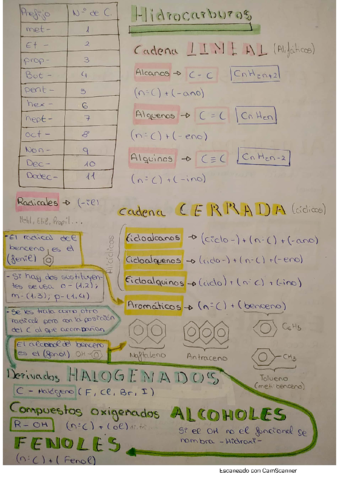 Prefijo Nº de C.
met- 1
Et - 2
prop- 3
But - 4
pent- 5
hex - 6
hept- 7
oct - 8
Non- 9
Dec- 10
Dodec- 11
Hidrocarburos
Cadena LINEAL (Alifáticos)
Alcanos → C - C CnH2n+2
(nºC) + (-ano)
Alquenos → C = C CnH2n
(nºC) + (-eno)
Alquinos → C ≡ C CnH2n-2
(nºC) + (-ino)
Radicales → (-il)
Met, Etil, Propil...
Cadena CERRADA (cíclicos)
- El radical del
benceno es el
(fenil)
- Si hay dos sustituyen
tes se usa o - (1,2);
m- (1,3); p- (1,4)
- Se les trata como otro
radical pero con la posición
del C al que acompañan
El alcohol de benceno
es el (fenol) OH
Cicloalcanos → (ciclo-) + (nºC) + (-ano)
Cicloalquenos → (ciclo-) + (nºC) + (-eno)
Cicloalquinos → (ciclo) + (nºC) + (-ino)
Aromáticos → (nºC) + (benceno)
C6H6
CH3
Naftaleno Antraceno Tolueno
(metilbenceno)
Derivados HALOGENADOS
C - Halógeno (F, Cl, Br, I)
Compuestos oxigenados ALCOHOLES
R - OH (nºC) + (ol)
Si el OH no el funcional se
nombra -Hidroxi-
FENOLES
(nºC) + (Fenol)
Escaneado con CamScanner